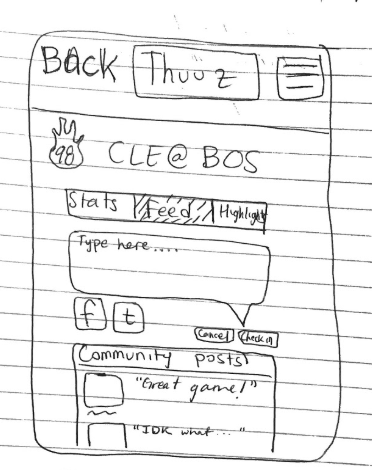 Back Thuuz
98 CLE @ BOS
Stats Feed Highlight
Type here....
f t
Cancel Check in
Community posts
"Great game!"
"IDK what..."